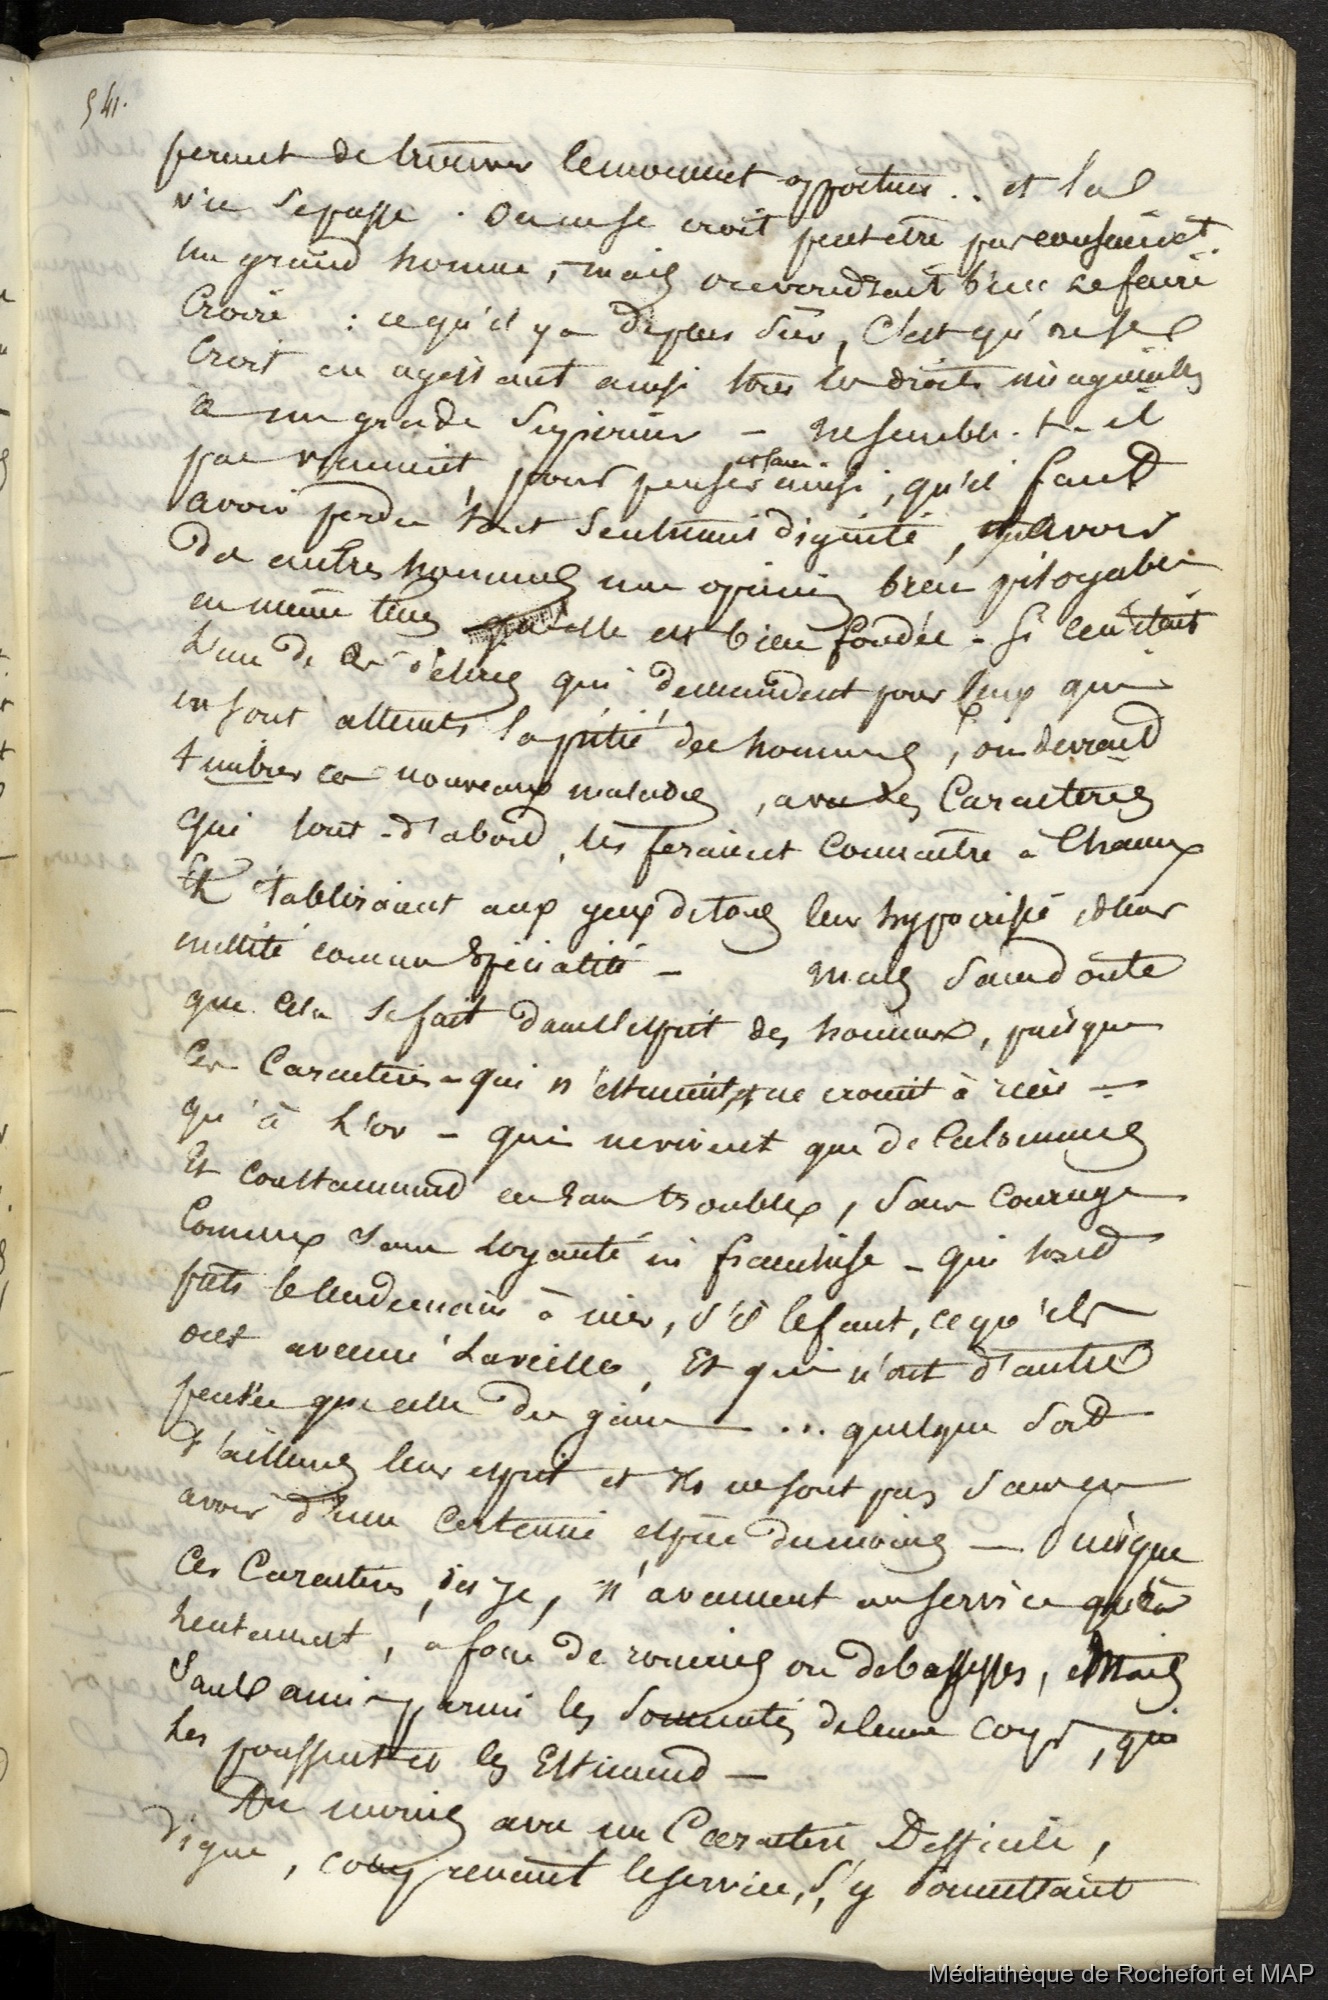 541.
permet de trouver le moment opportun .. et la
vie se passe . On ne se croit peut etre pas consciencieust.
un grand homme, mais on voudrait bien le faire
Croire : ce qu'il y a de plus sûr, C'est qu'on se
Croit en agissant ainsi tous les droits
à un grade Supérieur — ne semble-t-il
pas vraiment, pour penser et faire ainsi, qu'il faut
avoir perdu tout Sentiment dignité, avoir
des autres hommes une opinion bien pitoyable
en même tems qu'elle est bien fondée - Si c'était
L'un de ces délires qui demandent pour ceux qui
en sont atteints la pitié des hommes, on devrait
timbrer ces nouveaux malades, avec des Caractères
qui tout-d'abord, les feraient Connaître à Chacun
Et établiraient aux yeux de tous leur hypocrisie et leur
nullité comme Spécialité — Mais Sans doute
que cela se fait dans l'esprit des hommes, puisque
Ces Caractères - qui n'estiment, et ne croient à rien —
qu'à L'or - qui ne vivent que de Calomnies
Et Constamment en eau trouble, Sans Courage
Comme Sans loyauté ni franchise - qui Sont
prêts le lendemain à nier, S'il le faut, ce qu'ils
ont avancé La veille, Et qui n'ont d'autre
pensée que celle du gain — ... quelque Soit
d'ailleurs leur esprit et Ils ne sont pas Sans en
avoir d'une Certaine espèce du moins — Puisque
Ces Caractères, dis je, n'avancent au service qu'à
Lentement, a force de ou de bassesses, et Mais
Sans amis parmi les Sommités de leur Corps, qui
Les poussent et les Estiment —
Du moins avec un Caractère Difficile,
digne, comprenant le service, S'y Soumettant
Médiathèque de Rochefort et MAP